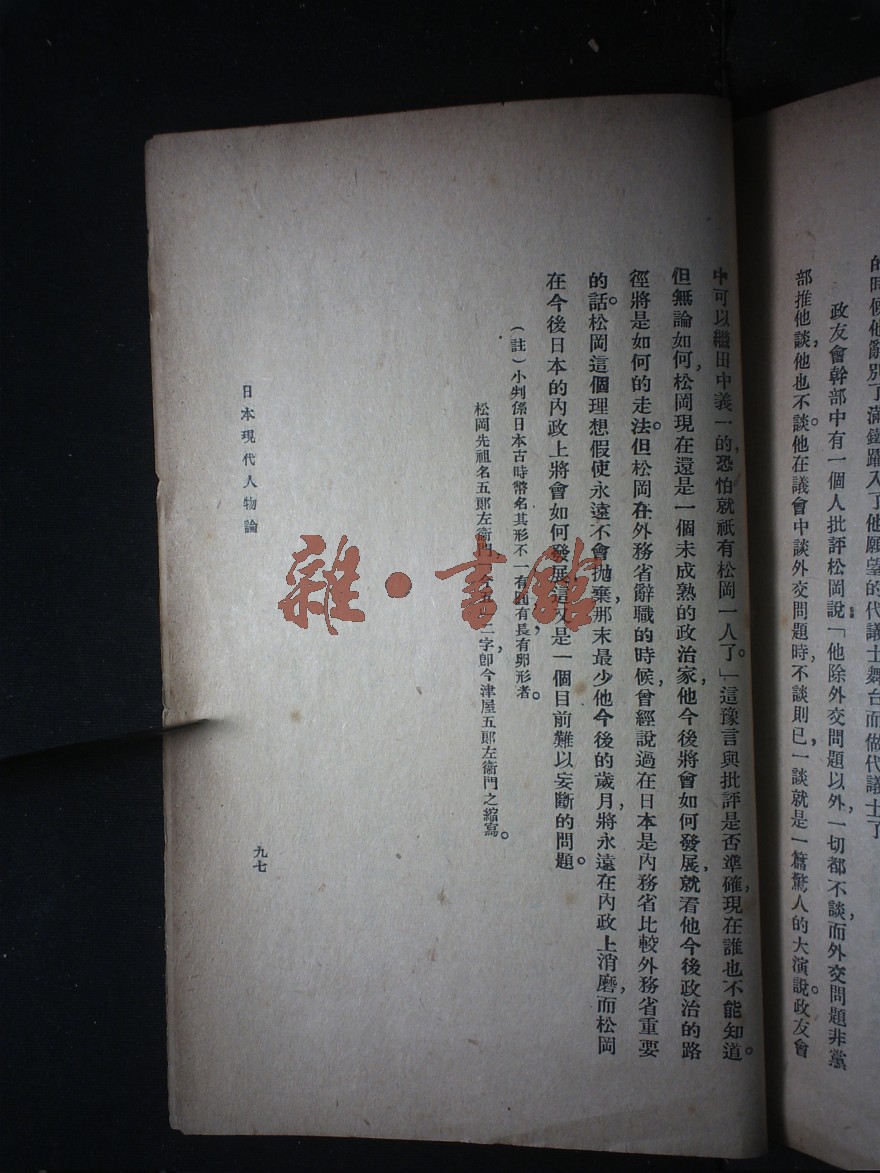 的時候他辭別了滿鐵躍入了他願望的代議士舞台而做代議士了
政友會幹部中有一個人批評松岡說「他除外交問題以外，一切都不談而外交問題非黨
部推他談，他也不談。他在議會中談外交問題時，不談則已，一談就是一篇驚人的大演說。政友會
中可以繼田中義一的，恐怕就祇有松岡一人了。」這豫言與批評是否準確，現在誰也不能知道。
但無論如何，松岡現在還是一個未成熟的政治家，他今後將會如何發展，就看他今後政治的路
徑將是如何的走法。但松岡在外務省辭職的時候，曾經說過在日本是內務省比較外務省重要
的話。松岡這個理想假使永遠不會拋棄，那末最少他今後的歲月，將永遠在內政上消磨，而松岡
在今後日本的內政上將會如何發展，這又是一個目前難以妄斷的問題。
（註）小判係日本古時幣名，其形不一，有圓有長，有卵形者。
松岡先祖名五郎左衛門，今五二字，卽今津屋五郎左衛門之縮寫。
日本現代人物論
九七
雜·書館